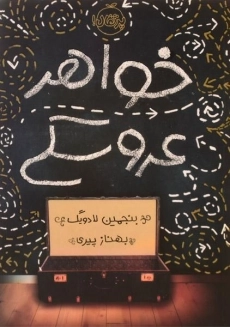 پرتقال
خواهر
عروسکی
بنجمین لادویگ
بهناز پیری